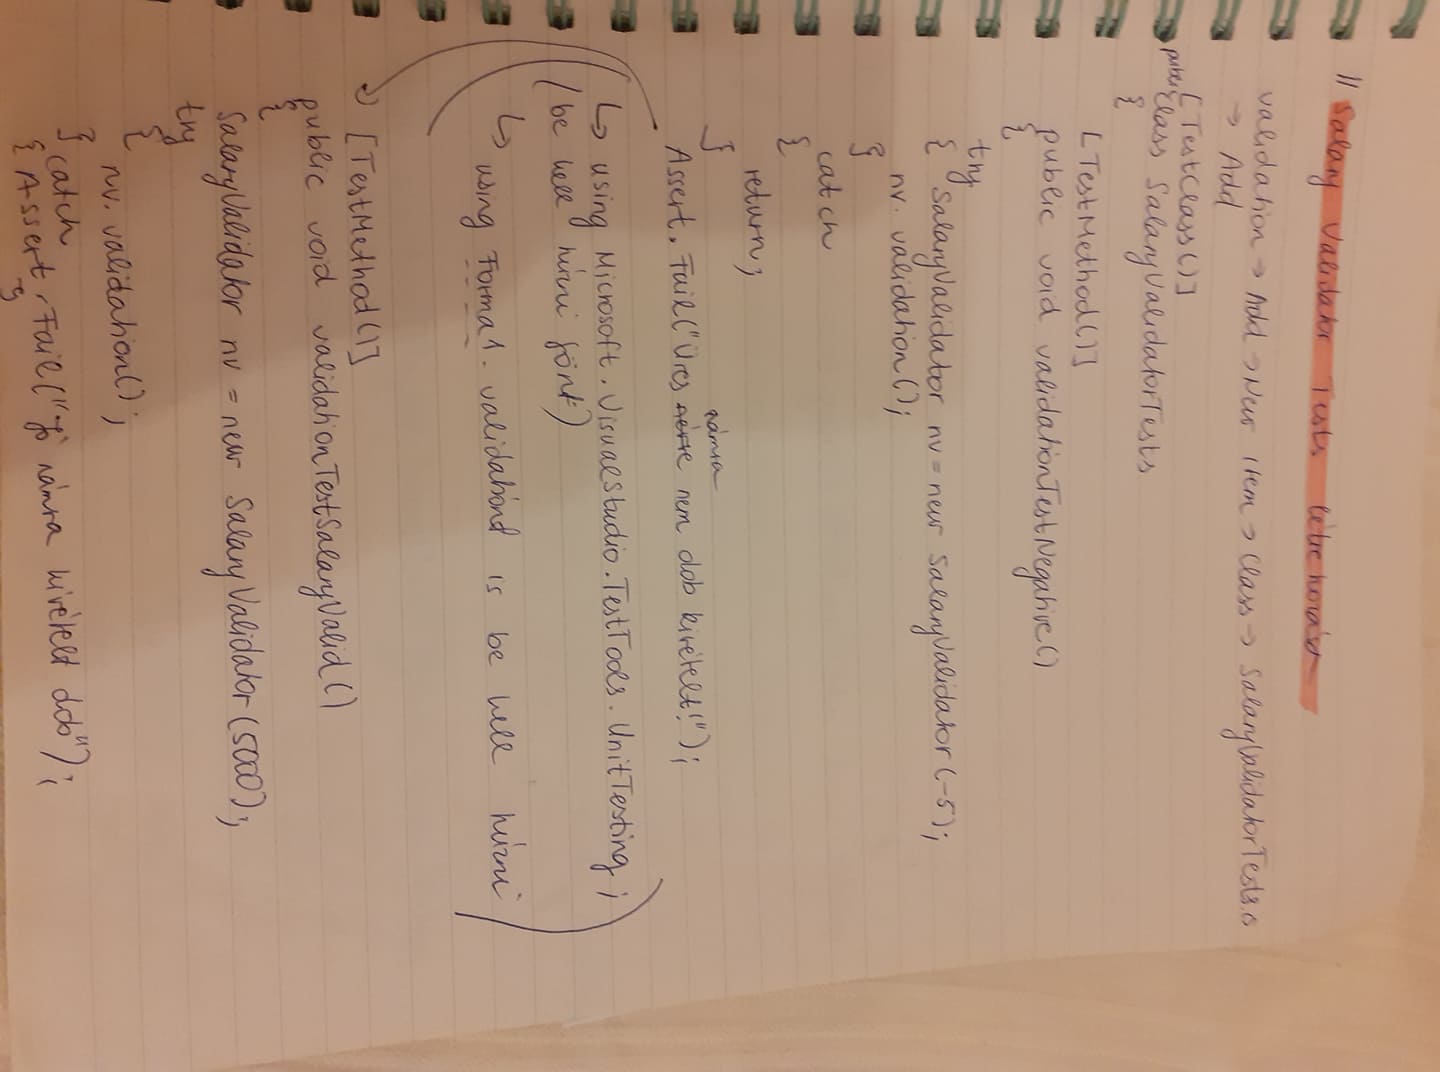 // Salary Validator Tests létrehozása
validation → Add → New Item → Class → SalaryValidatorTests.cs
→ Add
[TestClass()]
public class SalaryValidatorTests
{
[TestMethod()]
public void validationTestNegative()
{
try
{ SalaryValidator nv = new SalaryValidator(-5);
nv.validation();
}
catch
{
return;
}
számra
Assert.Fail("Üres nem dob kivételt!");
↳ using Microsoft.VisualStudio.TestTools.UnitTesting;
(be kell hívni fönt)
↳ using Forma1.validation is be kell hívni
[TestMethod()]
public void validationTestSalaryValid()
{
SalaryValidator nv = new SalaryValidator(5000);
try
{
nv.validation();
} catch
{ Assert.Fail("Jó számra kivételt dob");